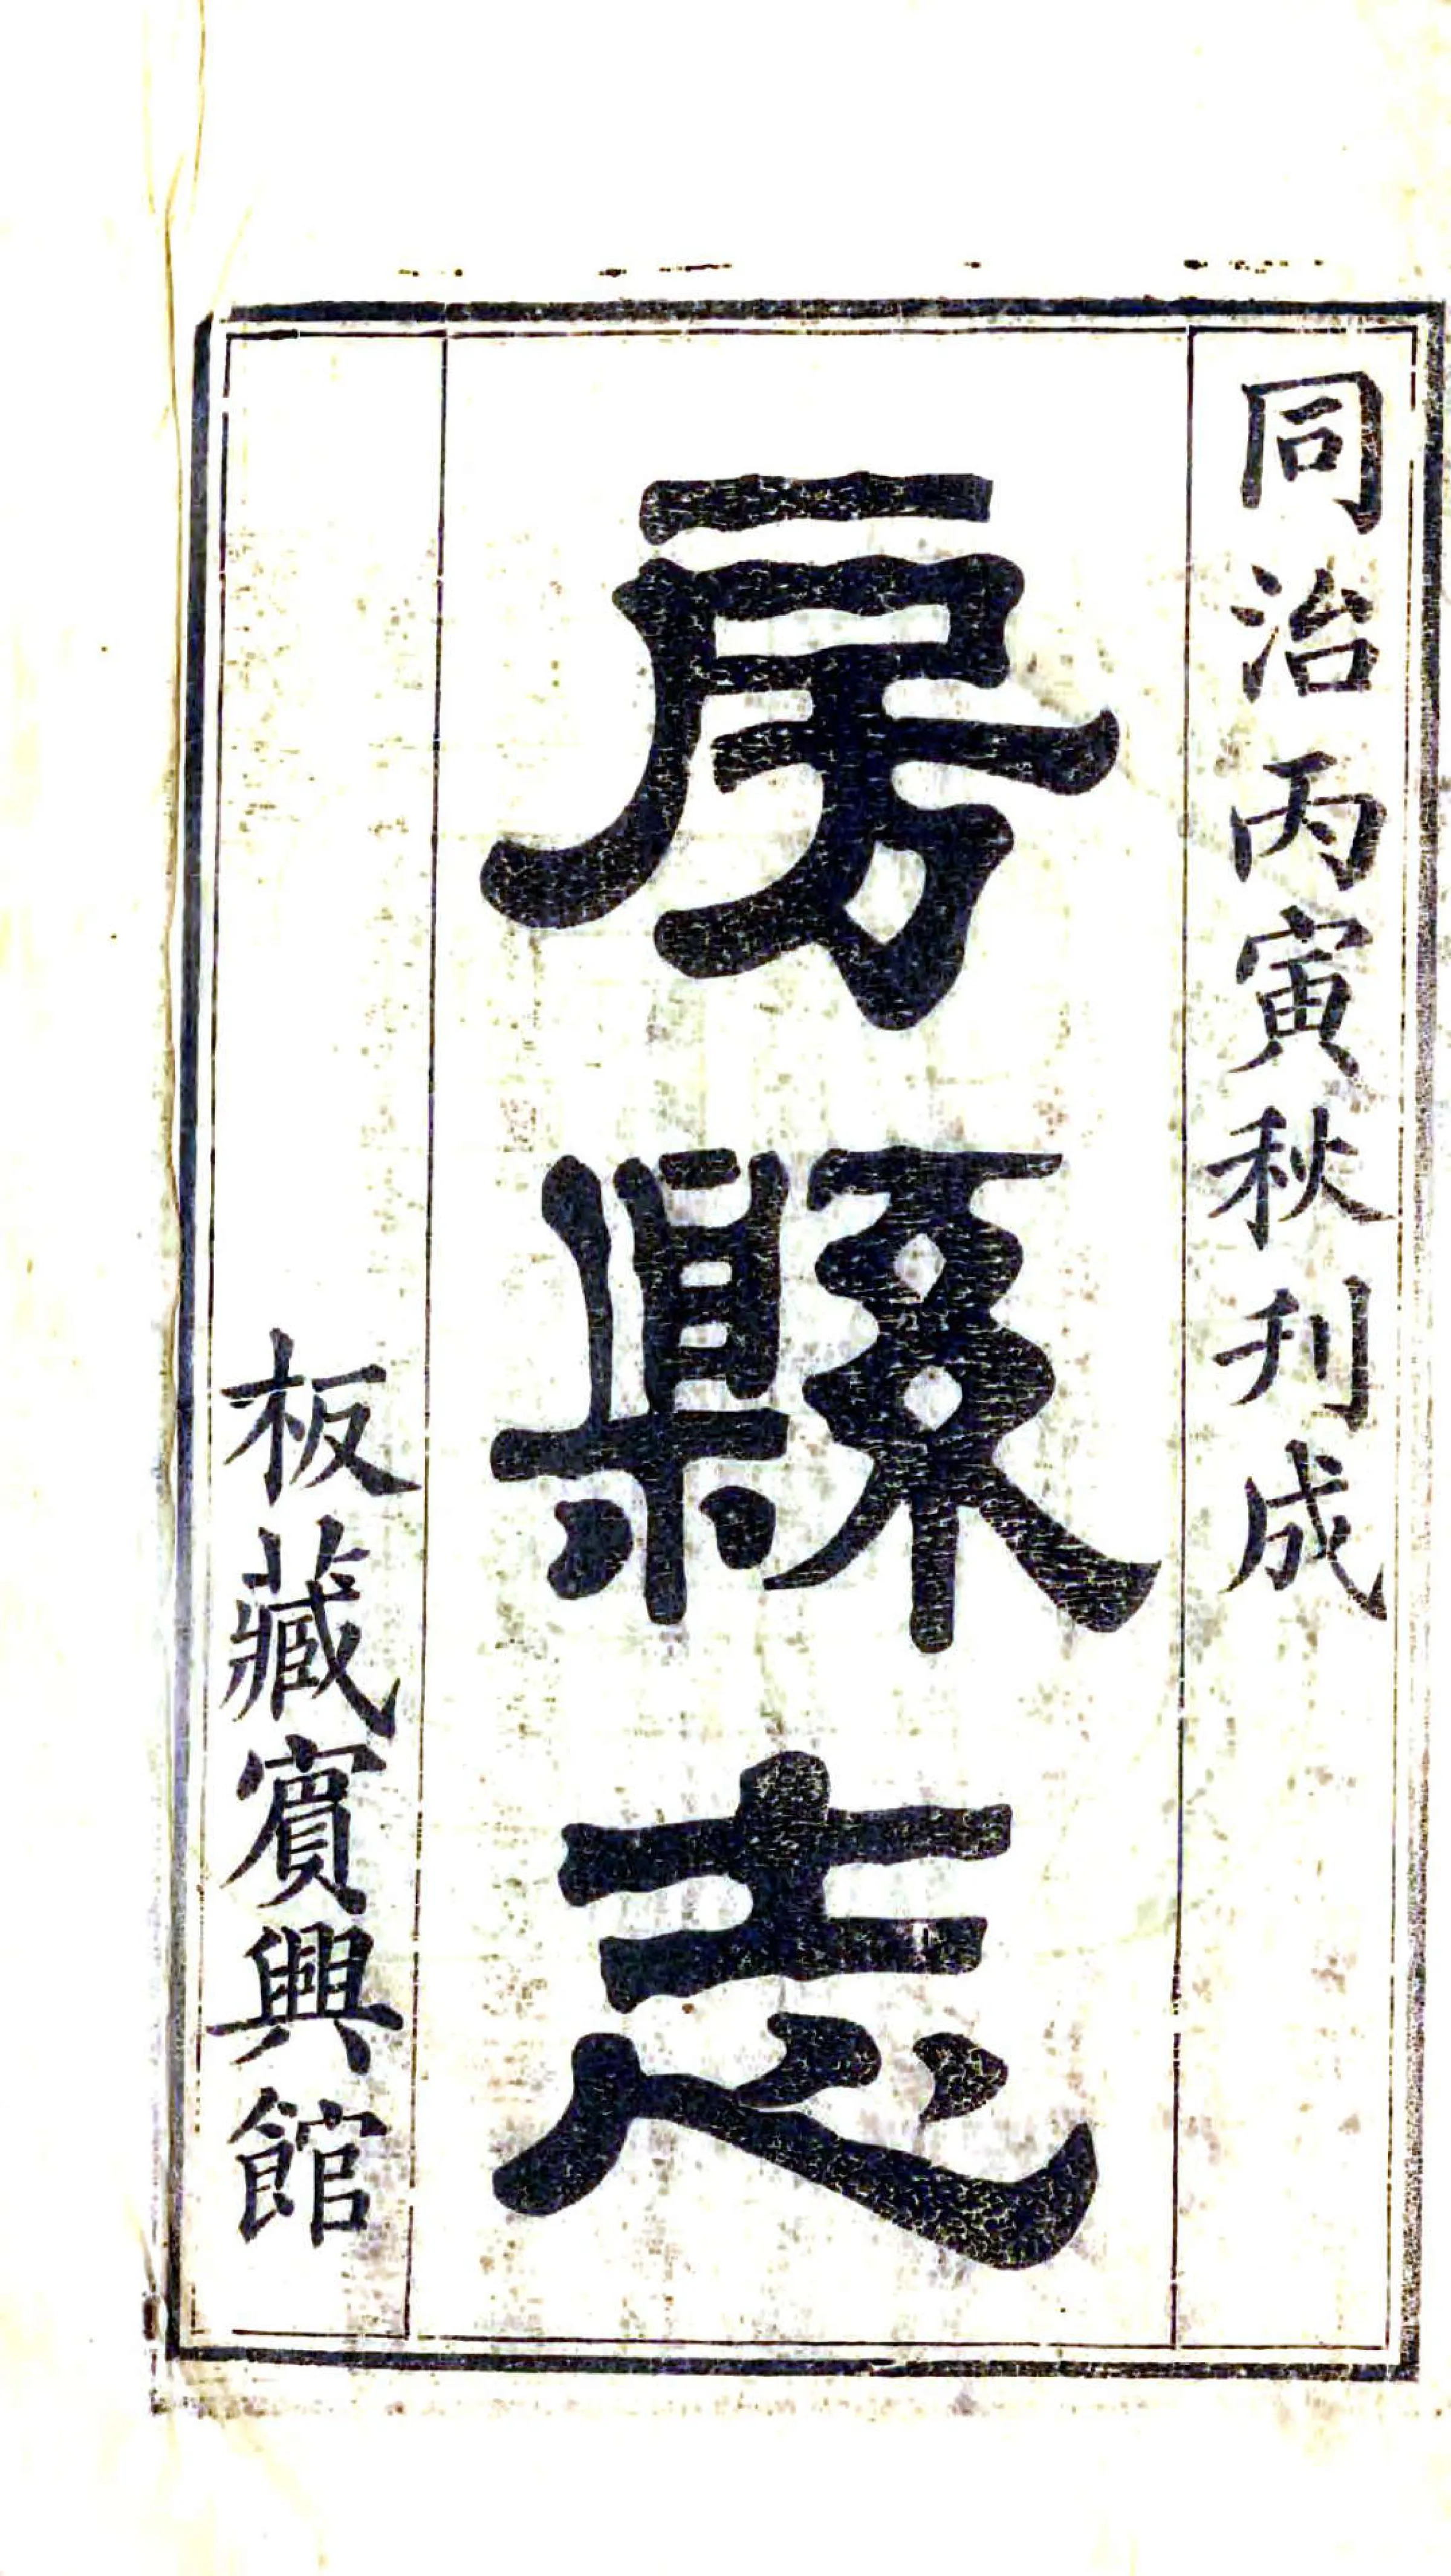 同治丙寅秋刋成
房縣志
板藏賔興館